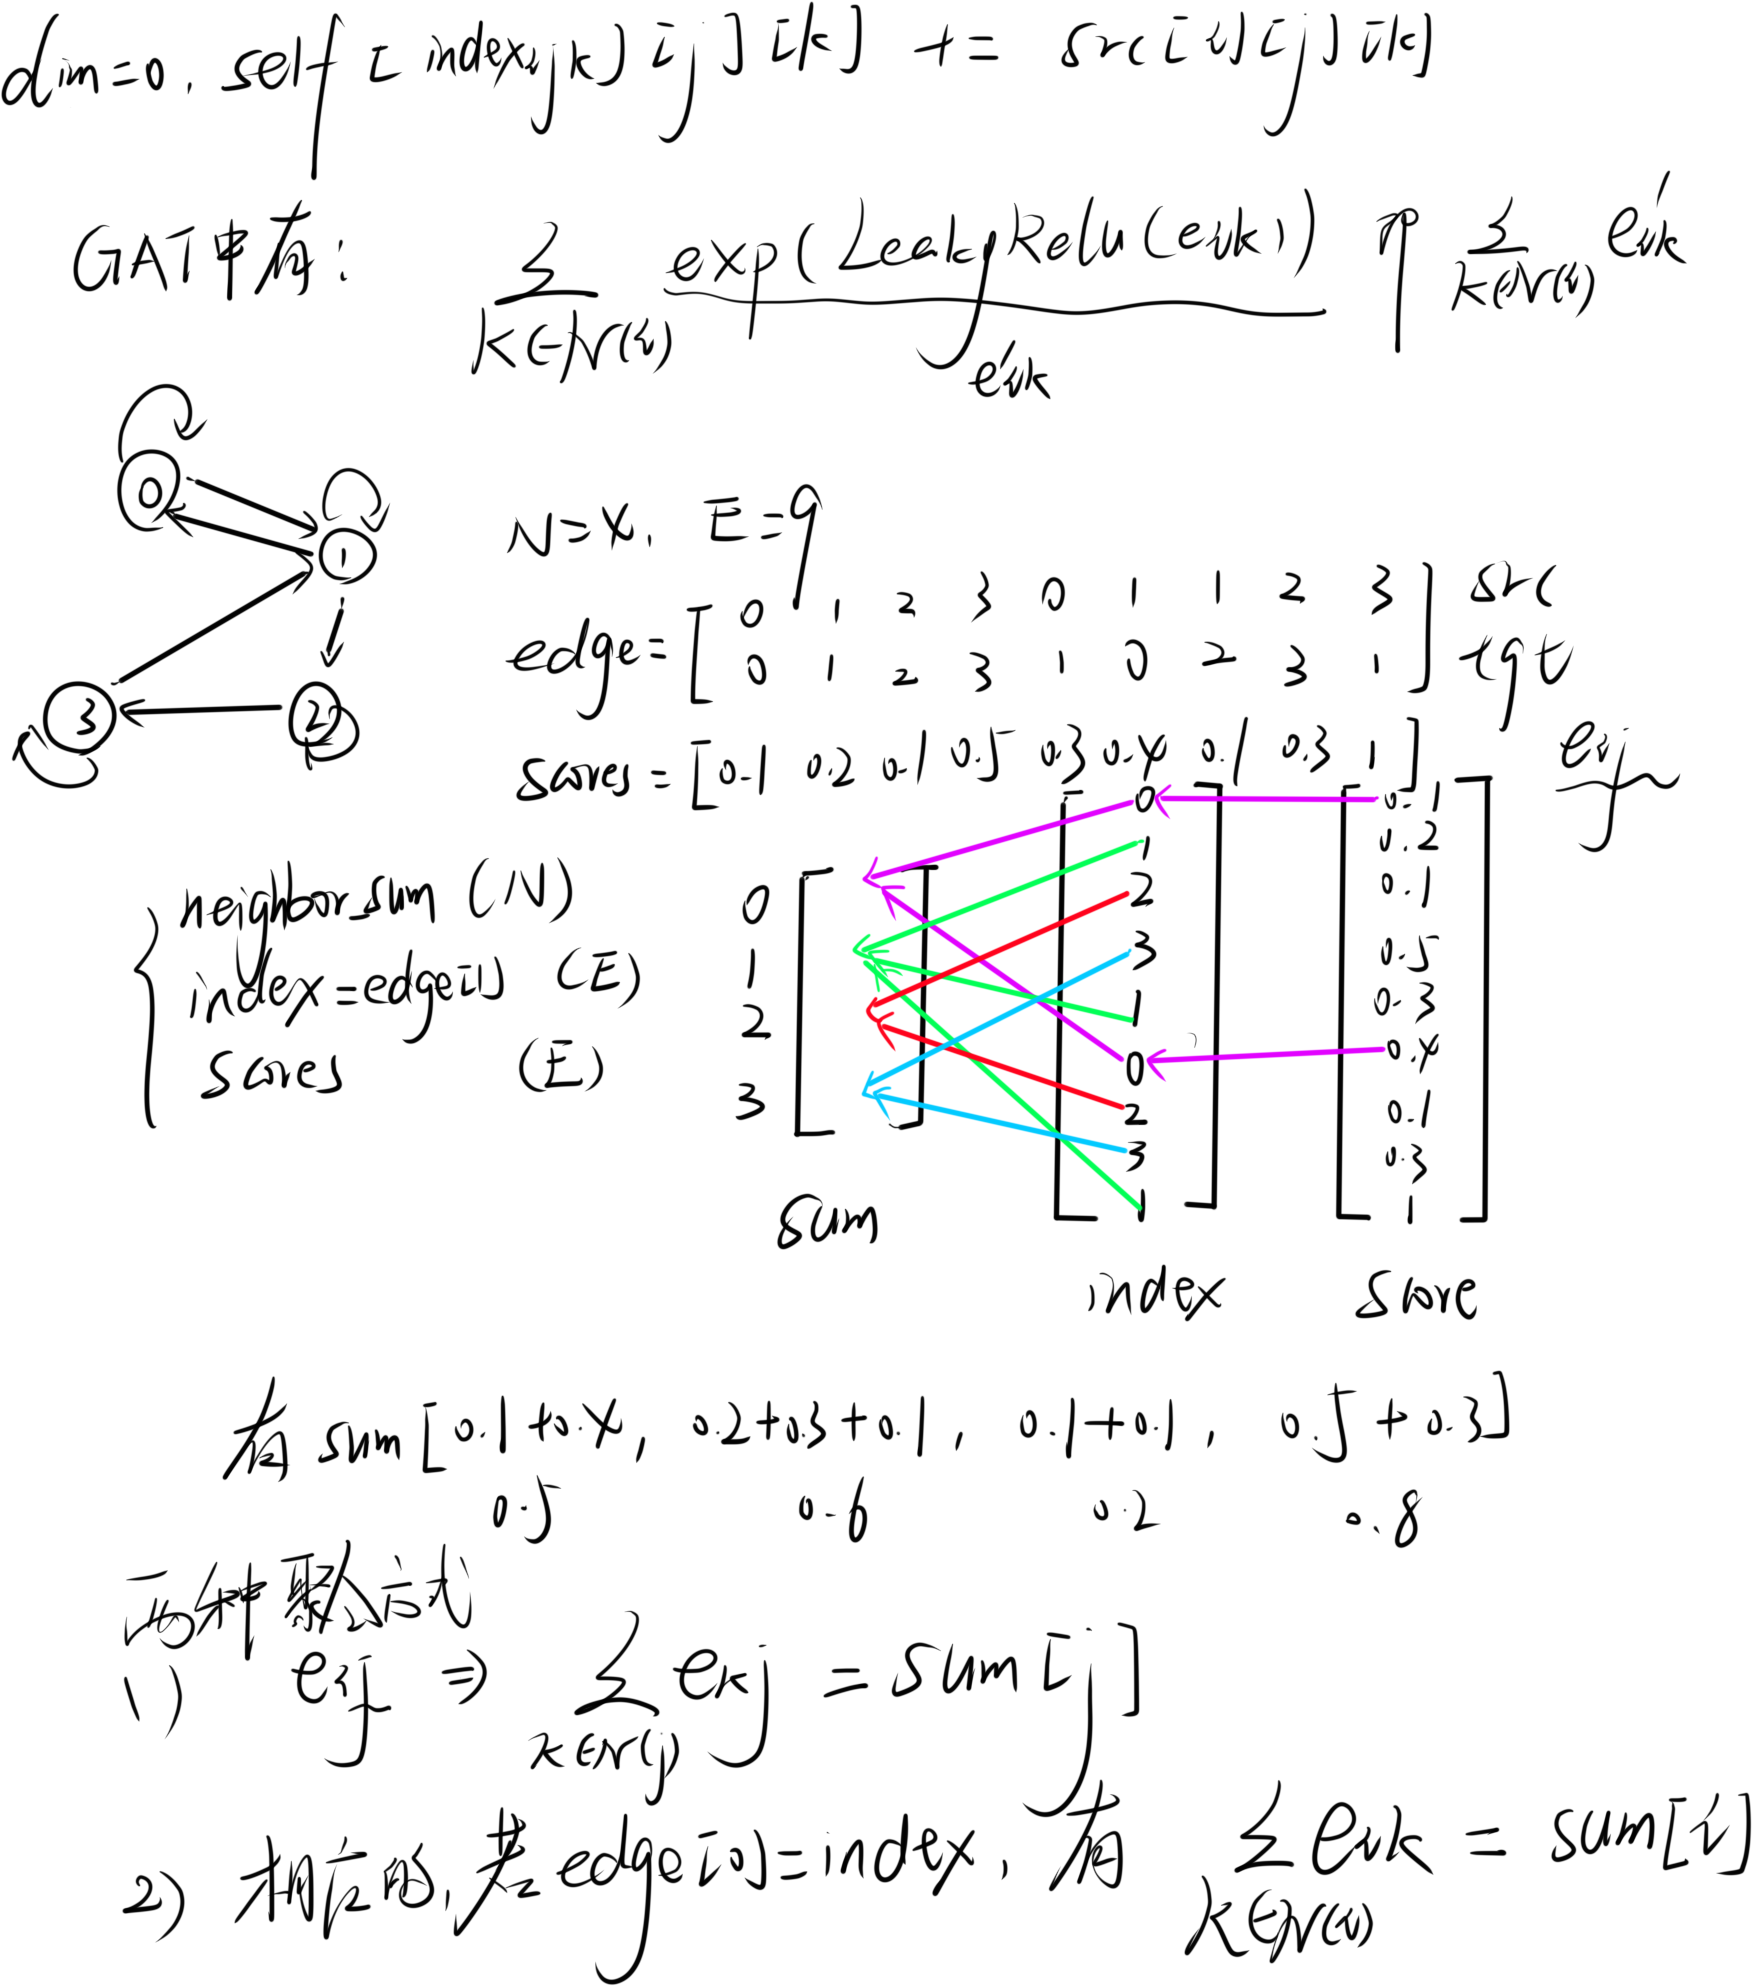 dim=0. self[index[i][j][k]][j][k] += src[i][j][k]
GAT中有: Σ exp(LeakyRelu(eik)) 即 Σ e'ik
k∈N(i) k∈N(i)
e'ik
0
1
3
2
N=4. E=9
edge= [0 1 2 3 0 1 1 2 3] src
0 1 2 3 1 0 2 3 1 tgt
scores = [0.1 0.2 0.1 0.5 0.3 0.4 0.1 0.3 1] eij
neighbor_sum (N)
index=edge[1] (E)
scores (E)
0
1
2
3
0
1
2
3
1
0
2
3
1
0.1
0.2
0.1
0.5
0.3
0.4
0.1
0.3
1
sum
index
score
有 sum[0.1+0.4, 0.2+0.3+0.1, 0.1+0.1, 0.5+0.3]
0.5 0.6 0.2 0.8
两种聚合方式
1) eij ⇒ Σ ekj = sum[j]
k∈N(j)
2) 相应的,若edge[0]=index, 有 Σ eik = sum[i]
k∈N(i)